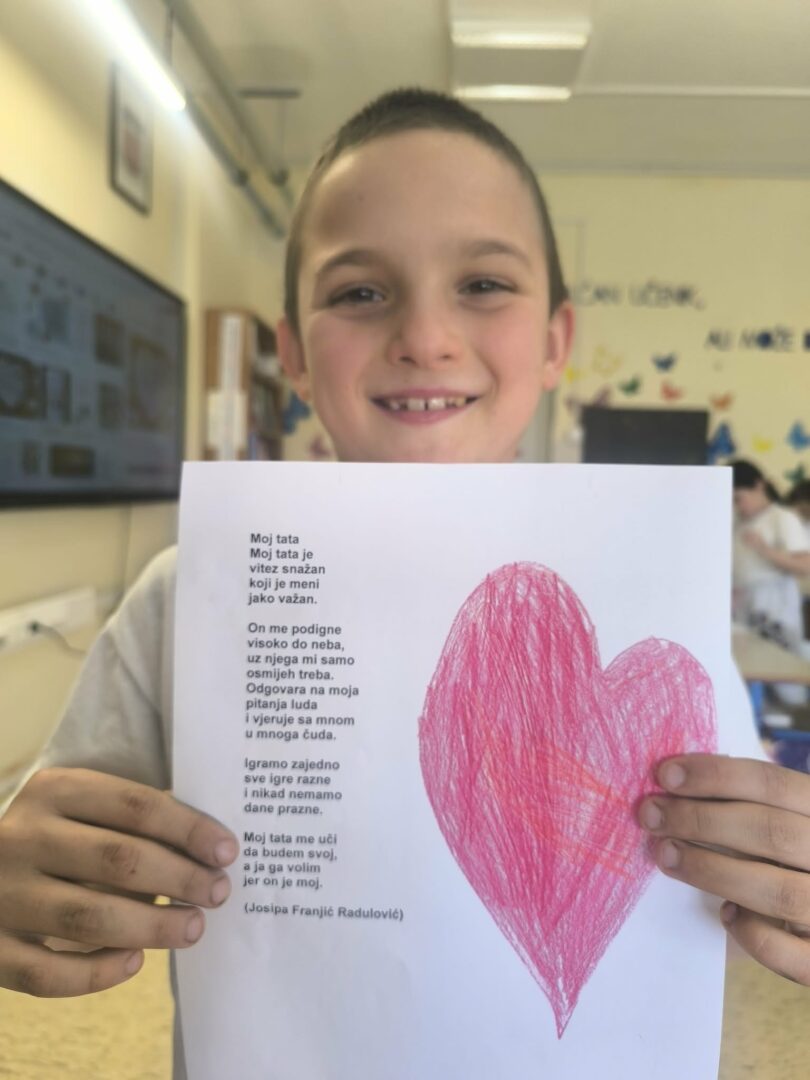 ČAN UČENIK,
ALI MOŽE
Moj tata
Moj tata je
vitez snažan
koji je meni
jako važan.
On me podigne
visoko do neba,
uz njega mi samo
osmijeh treba.
Odgovara na moja
pitanja luda
i vjeruje sa mnom
u mnoga čuda.
Igramo zajedno
sve igre razne
i nikad nemamo
dane prazne.
Moj tata me uči
da budem svoj,
a ja ga volim
jer on je moj.
(Josipa Franjić Radulović)